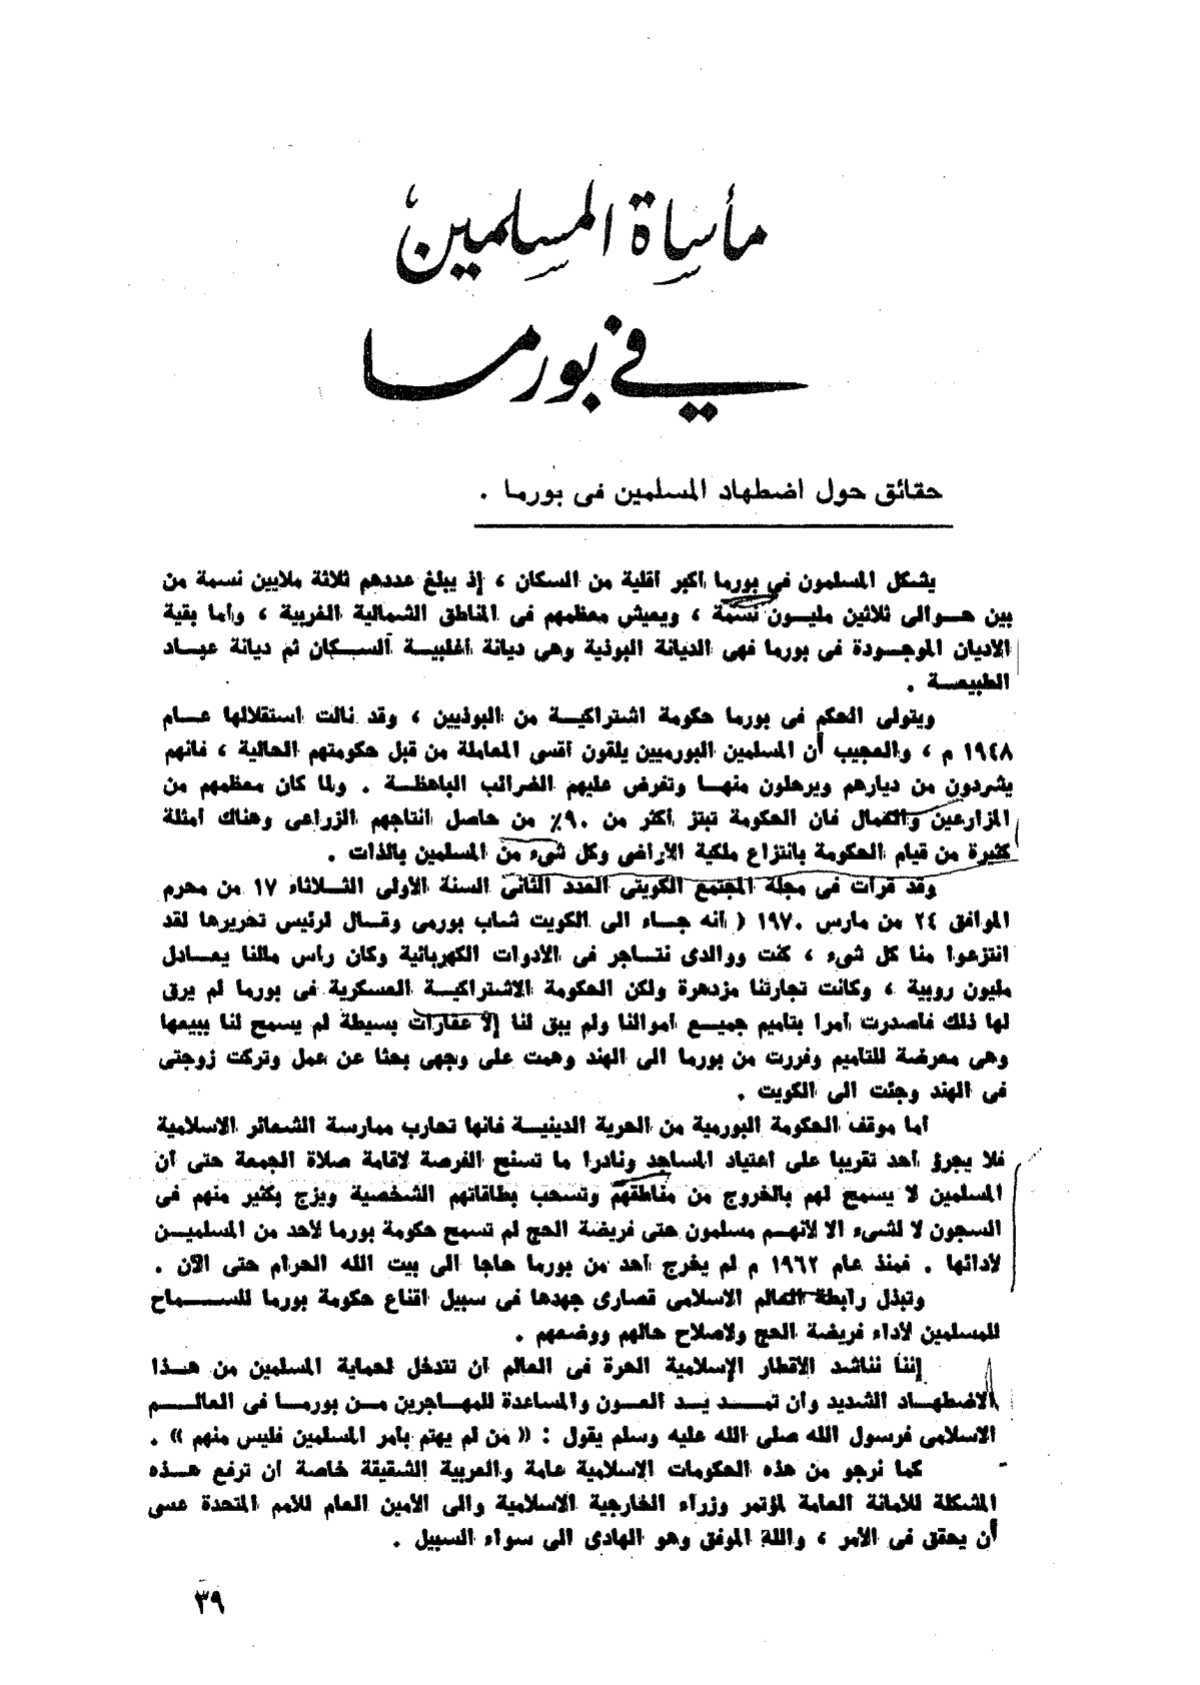 مأساة المسلمين
في بورما
حقائق حول اضطهاد المسلمين فى بورما .
يشكل المسلمون في بورما أكبر أقلية من السكان ، إذ يبلغ عددهم ثلاثة ملايين نسمة من
بين حوالى ثلاثين مليون نسمة ، ويعيش معظمهم فى المناطق الشمالية الغربية ، وأما بقية
الاديان الموجودة فى بورما فهى الديانة البوذية وهى ديانة أغلبية السكان ثم ديانة عباد
الطبيعة .
ويتولى الحكم فى بورما حكومة اشتراكية من البوذيين ، وقد نالت استقلالها عام
١٩٤٨ م ، والعجيب أن المسلمين البورميين يلقون أقسى المعاملة من قبل حكومتهم الحالية ، فانهم
يشردون من ديارهم ويرحلون منها وتفرض عليهم الضرائب الباهظة . ولما كان معظمهم من
المزارعين والعمال فان الحكومة تبتز أكثر من ٩٠٪ من حاصل انتاجهم الزراعى وهناك أمثلة
كثيرة من قيام الحكومة بانتزاع ملكية الأراضى وكل شىء من المسلمين بالذات .
وقد قرأت فى مجلة المجتمع الكويتى العدد الثانى السنة الأولى الثلاثاء ١٧ من محرم
الموافق ٢٤ من مارس ١٩٧٠ ( أنه جاء الى الكويت شاب بورمى وقال لرئيس تحريرها لقد
انتزعوا منا كل شىء ، كنت ووالدى نتاجر فى الادوات الكهربائية وكان رأس مالنا يعادل
مليون روبية ، وكانت تجارتنا مزدهرة ولكن الحكومة الاشتراكية العسكرية فى بورما لم يرق
لها ذلك فأصدرت أمرا بتاميم جميع أموالنا ولم يبق لنا إلا عقارات بسيطة لم يسمح لنا ببيعها
وهى معرضة للتاميم وفررت من بورما الى الهند وهمت على وجهى بحثا عن عمل وتركت زوجتى
فى الهند وجئت الى الكويت .
أما موقف الحكومة البورمية من الحرية الدينية فانها تحارب ممارسة الشعائر الاسلامية
فلا يجرؤ أحد تقريبا على اعتياد المساجد ونادرا ما تسنح الفرصة لاقامة صلاة الجمعة حتى أن
المسلمين لا يسمح لهم بالخروج من مناطقهم وتسحب بطاقاتهم الشخصية ويزج بكثير منهم فى
السجون لا لشىء الا لأنهم مسلمون حتى فريضة الحج لم تسمح حكومة بورما لأحد من المسلمين
لادائها . فمنذ عام ١٩٦٢ م لم يخرج أحد من بورما حاجا الى بيت الله الحرام حتى الآن .
وتبذل رابطة العالم الاسلامى قصارى جهدها فى سبيل اقناع حكومة بورما للسماح
للمسلمين لأداء فريضة الحج ولاصلاح حالهم ووضعهم .
إننا نناشد الاقطار الإسلامية الحرة فى العالم أن تتدخل لحماية المسلمين من هذا
الاضطهاد الشديد وأن تمد يد العون والمساعدة للمهاجرين من بورما فى العالم
الاسلامى فرسول الله صلى الله عليه وسلم يقول : « من لم يهتم بأمر المسلمين فليس منهم » .
كما نرجو من هذه الحكومات الاسلامية عامة والعربية الشقيقة خاصة أن ترفع هذه
المشكلة للأمانة العامة لمؤتمر وزراء الخارجية الاسلامية والى الأمين العام للأمم المتحدة عسى
أن يحقق فى الأمر ، والله الموفق وهو الهادى الى سواء السبيل .
٣٩